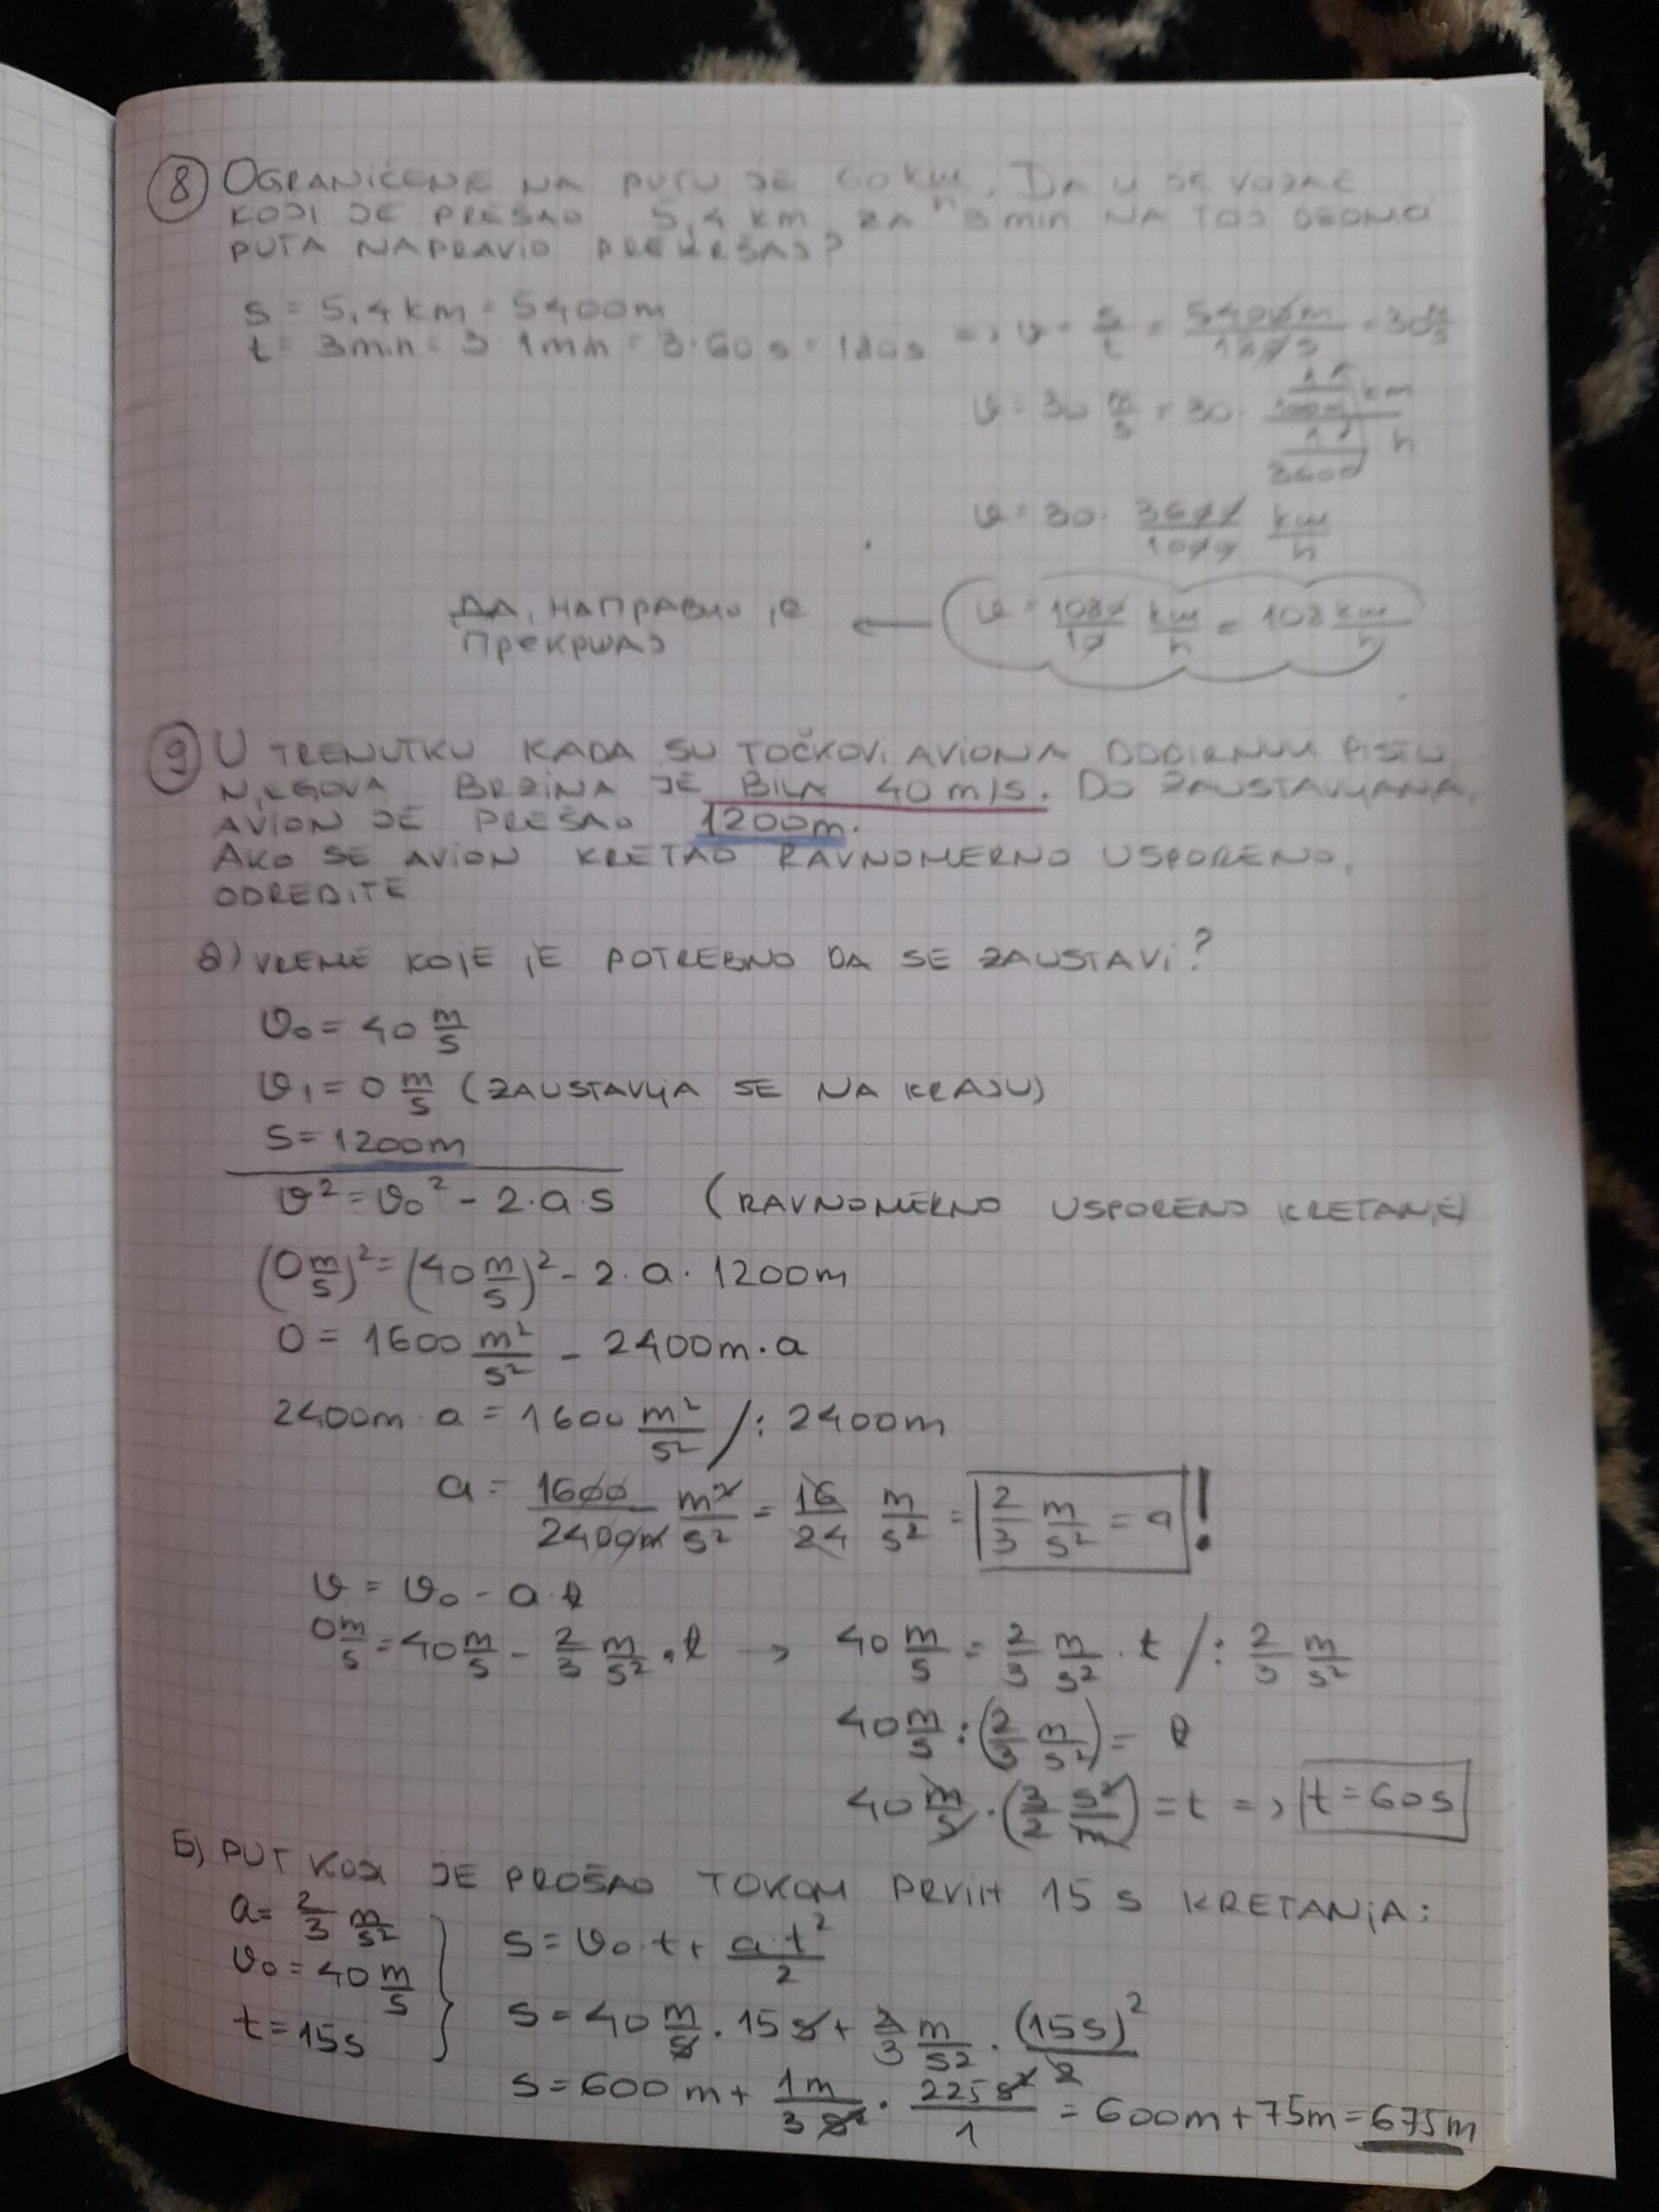 8 OGRANIČENJE NA PUTU JE 60 km/h. DA LI JE VOZAČ
KOJI JE PREŠAO 5,4 km ZA 3 min NA TOJ DEONICI
PUTA NAPRAVIO PREKRŠAJ?
s = 5,4 km = 5400m
t = 3min = 3·1min = 3·60s = 180s => v = s/t = 5400m/180s = 30 m/s
v = 30 m/s = 30 · (1/1000 km)/(1/3600 h)
v = 30 · 3600/1000 km/h
ДА, НАПРАВИО ЈЕ ← v = 1080/10 km/h = 108 km/h
ПРЕКРШАЈ
9 U TRENUTKU KADA SU TOČKOVI AVIONA DODIRNULI PISTU,
NJEGOVA BRZINA JE BILA 40 m/s. DO ZAUSTAVLJANJA,
AVION JE PREŠAO 1200m.
AKO SE AVION KRETAO RAVNOMERNO USPORENO,
ODREDITE
a) VREME KOJE JE POTREBNO DA SE ZAUSTAVI?
v₀ = 40 m/s
v₁ = 0 m/s (ZAUSTAVLJA SE NA KRAJU)
s = 1200m
v² = v₀² - 2·a·s (RAVNOMERNO USPORENO KRETANJE)
(0 m/s)² = (40 m/s)² - 2·a·1200m
0 = 1600 m²/s² - 2400m·a
2400m·a = 1600 m²/s² /: 2400m
a = 1600/2400m m²/s² = 16/24 m/s² = 2/3 m/s² = a !
v = v₀ - a·t
0 m/s = 40 m/s - 2/3 m/s² · t → 40 m/s = 2/3 m/s² · t /: 2/3 m/s²
40 m/s : (2/3 m/s²) = t
40 m/s · (3/2 s²/m) = t => t = 60s
Б) PUT KOJI JE PROŠAO TOKOM PRVIH 15 s KRETANJA:
a = 2/3 m/s²
v₀ = 40 m/s
t = 15s
s = v₀·t + a·t²/2
s = 40 m/s · 15s + 2/3 m/s² · (15s)²/2
s = 600m + 1m/3s² · 225s²/1 = 600m + 75m = 675m